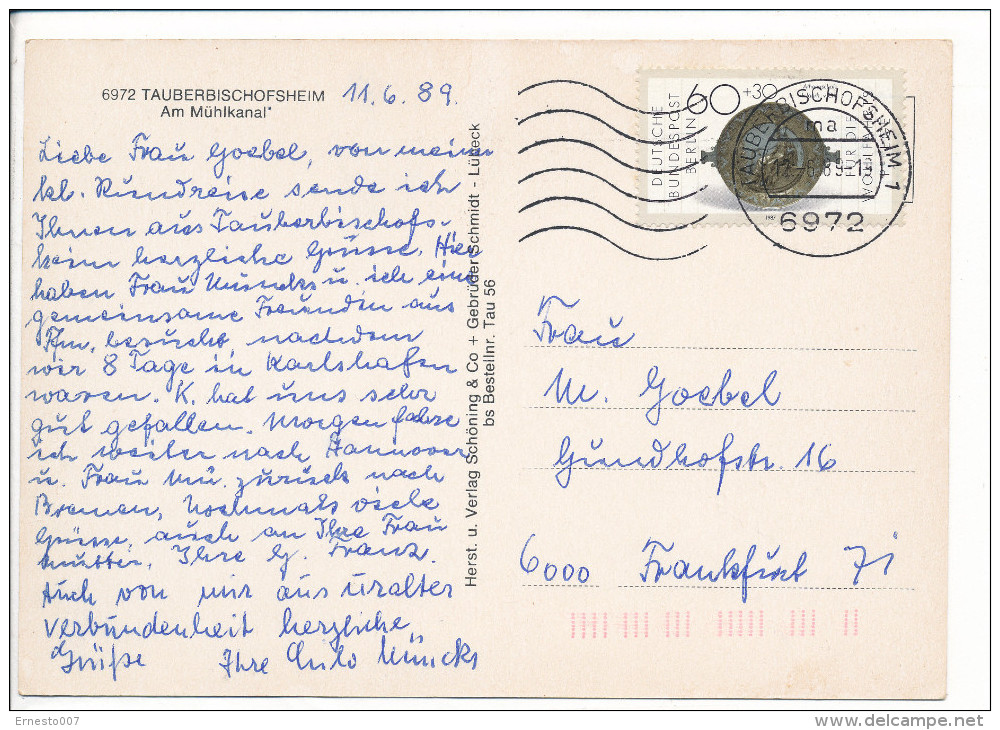 6972 TAUBERBISCHOFSHEIM
Am Mühlkanal
11.6.89.
Liebe Frau Goebel, von meiner
kl. Rundreise sende ich
Ihnen aus Tauberbischofs-
heim herzliche Grüsse. Hier
haben Frau u. ich eine
gemeinsame Freundin aus
Ffm. besucht nachdem
wir 8 Tage in Karlshafen
waren. K. hat uns sehr
gut gefallen. Morgen fahre
ich weiter nach Hannover
u. Frau Mü. zurück nach
Bremen, Nochmals viele
Grüsse, auch an Ihre Frau
Mutter, Ihre G. Franz.
Auch von mir aus uralter
Verbundenheit herzliche
Grüße Ihre
Herst. u. Verlag Schöning & Co + Gebrüder Schmidt - Lübeck
bs Bestellnr. Tau 56
DEUTSCHE
BUNDESPOST
BERLIN
60+30
FÜR DIE
WOHLFAHRT
1987
TAUBERBISCHOFSHEIM 1
ma
6972
Frau
M. Goebel
Gundhofstr. 16
6000 Frankfurt 71
Ernesto007
delcampe.net